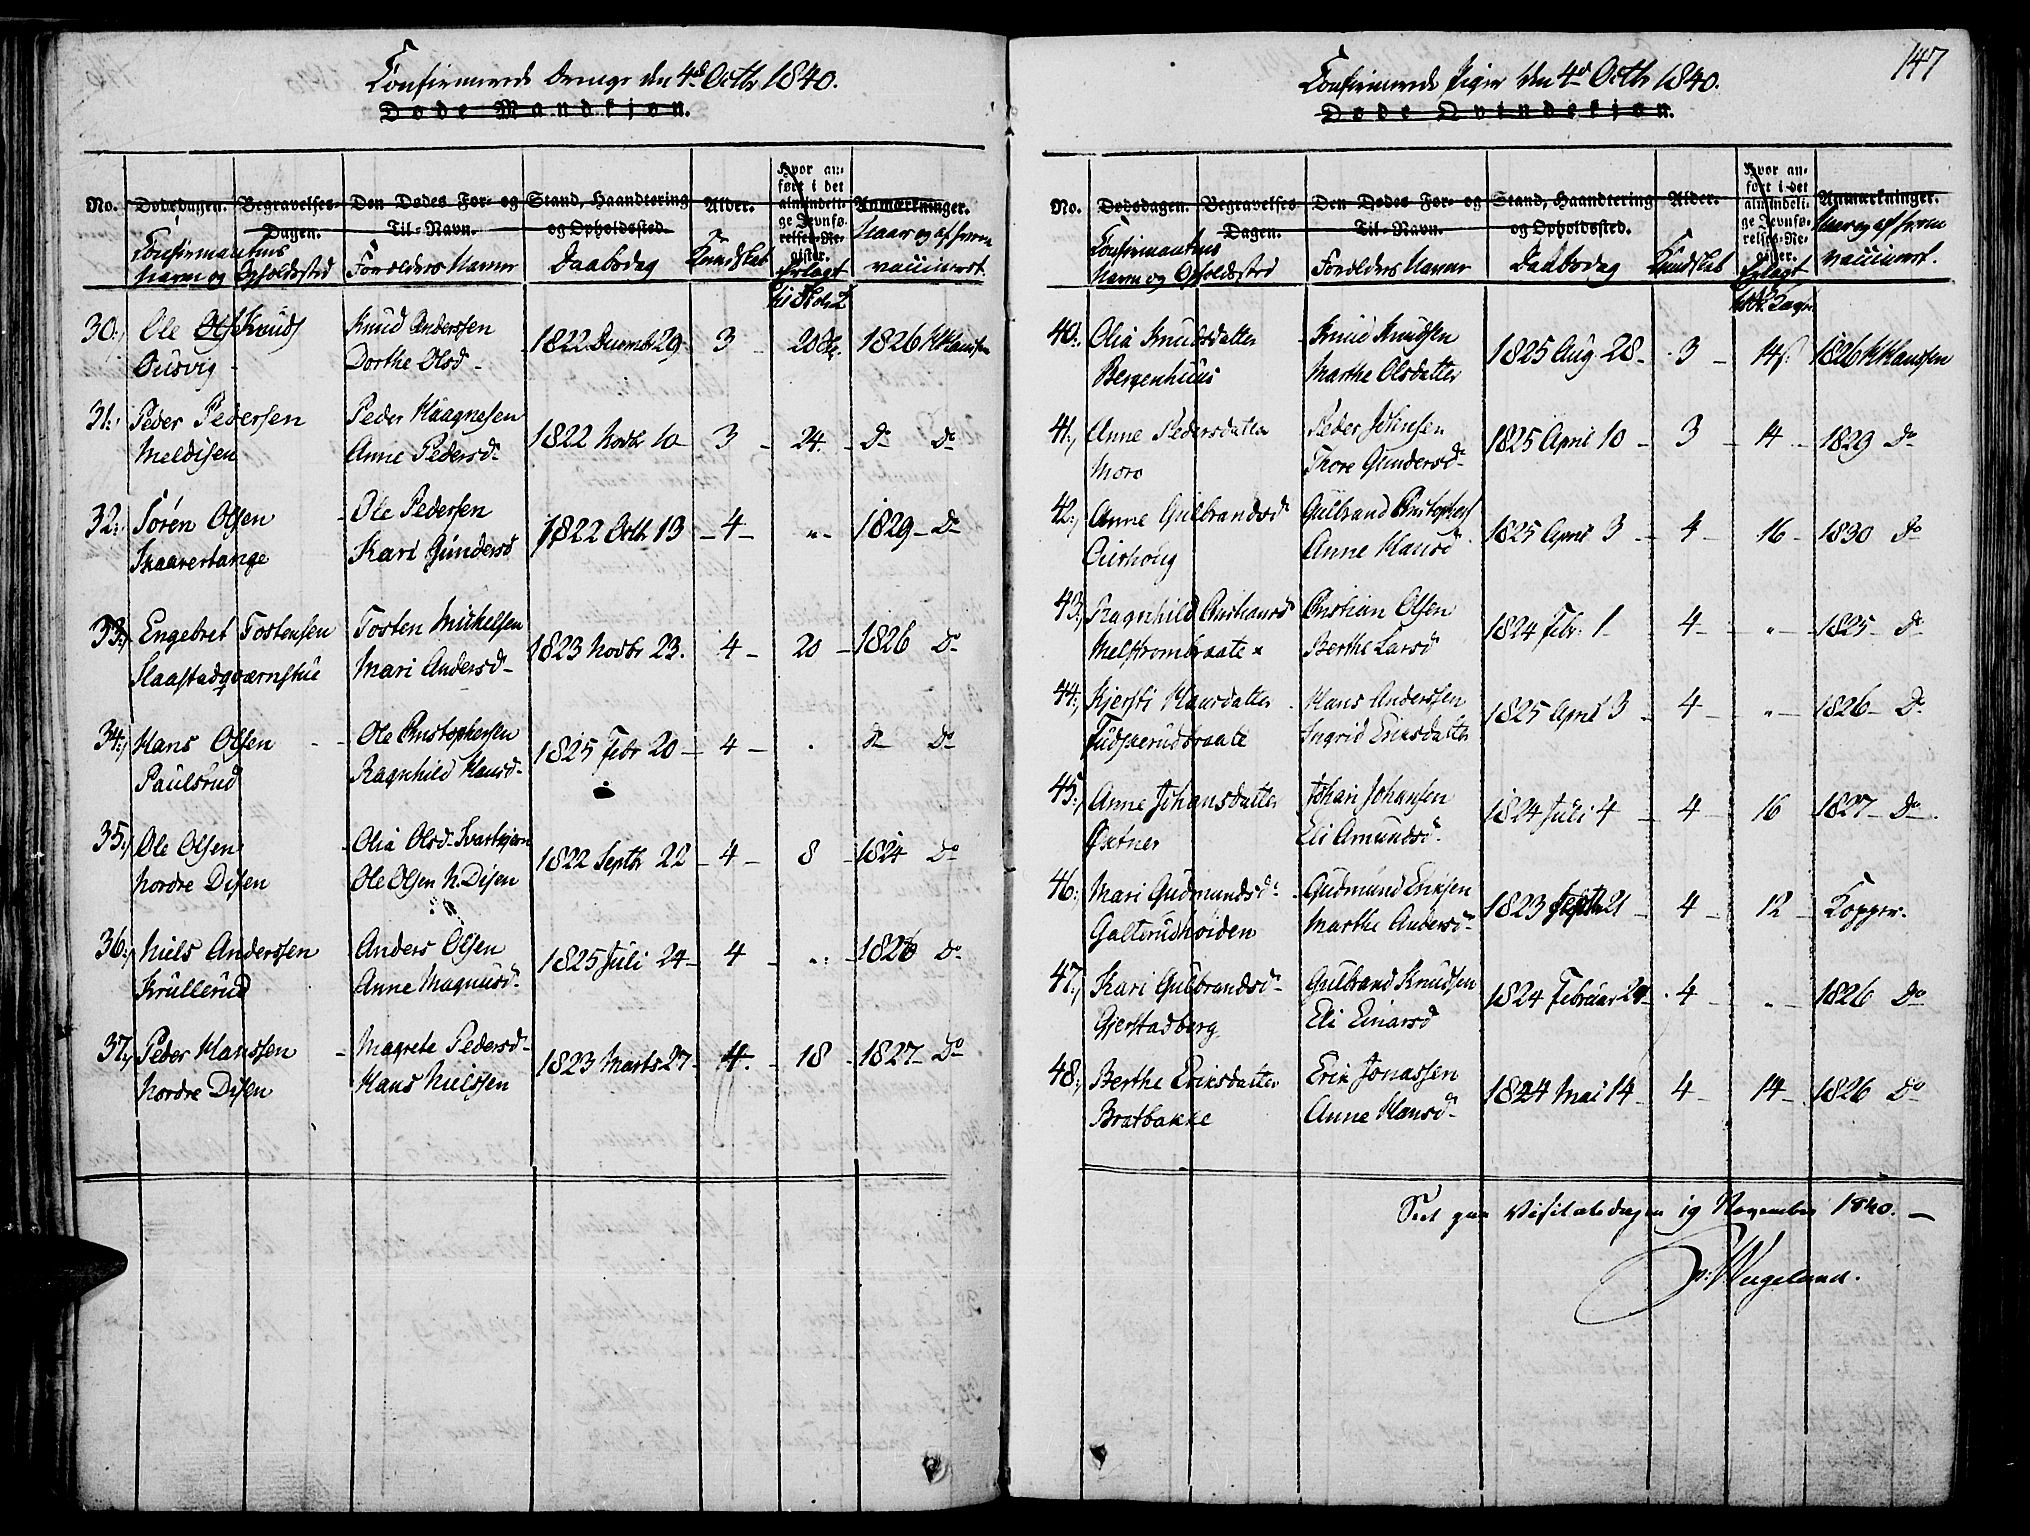 Confirmerede Drenge den 4de Octbr 1840.
Døde Mandkjøn.
No. Dødsdagen. Begravelses-Dagen. Den Dødes For- og Til-Navn. Stand, Haandtering og Opholdssted. Alder. Hvor anført i det almindelige Jevnførelses-Register. Anmærkninger.
Confirmantens Navn og Opholdssted Forældres Navne Daabsdag Kundskab Erlagt Naar og af hvem vaccineret.
30. Ole Ols Knuds Knud Anderssen 1822 Decemb 29 3 20 1826 K Hanssen
Dorthe Olsd
31. Peder Pedersen Peder Haagnesen 1822 Novbr 10 3 24. Do Do
Meldisen Anne Pedersd
32. Søren Olsen Ole Pedersen 1822 Octb 13 4 " 1829 Do
Skaavertange Kari Gundersd
33. Engebret Tostensen Tosten Mickelsen 1823 Novbr 23. 4 20 1826 Do
Slaastadqværnstue Mari Andersd
34. Hans Olsen Ole Christophersen 1825 Febr 20 4 . Do Do
Paulsrud Ragnhild Hansd
35. Ole Olsen Olia Olsd Svartkjern 1822 Septbr 22 4 8 1824 Do
Nordre Disen Ole Olsen N. Disen
36. Niels Anderssen Anders Olsen 1825 Juli 24 4 " 1826 Do
Krullerud Anne Magnusd
37. Peder Hanssen Magrete Pedersd 1823 Marts 27 4. 18 1827 Do
Nordre Disen Hans Nielssen
147
Confirmerede Piger den 4de Octbr 1840.
Døde Qvindekjøn.
No. Dødsdagen. Begravelses Dagen. Den Dødes For- og Til-Navn. Stand, Haandtering og Opholdssted. Alder. Hvor anført i det almindelige Jevnførelses-Register. Anmærkninger.
Confirmantens Navn og Opholdssted Forældres Navne Daabsdag Kundskab Erlagt Naar og af hvem vaccineret.
40. Olia Knudsdatter Knud Knudsen 1825 Aug 28 3 14 1826 K Hanssen
Bergenhuus Marthe Olsdatter
41. Anne Pedersdatter Peder Johnsen 1825 April 10 3 14 1829 Do
Moro Thore Gundersd
42. Anne Gulbrandsd Gulbrand Christophers 1825 April 3 4 16 1830 Do
Anne Hansd
43. Ragnhild Christiansd Christian Olsen 1824 Febr. 1 4 " 1825 Do
Melstrombraate Berthe Larsd
44. Kjersti Hansdatter Hans Anderssen 1825 April 3 4 " 1826 Do
Fudskerudbraate Ingrid Eriksdatter
45. Anne Johansdatter Johan Johansen 1824 Juli 4 4 16 1827 Do
Østner Eli Amundsd
46. Mari Gudmundsd Gudmund Eriksen 1823 Septbr 21 4 12 Kopper
Galterudhøiden Marthe Andersd
47. Kari Gulbrandsd Gulbrand Knudsen 1824 Februar 4 " 1826 Do
Gjerstadberg Eli Einarsd
48. Berthe Eriksdatter Erik Jonassen 1824 Mai 14 4 14 1826 Do
Bratbakke Anne Hansd
Seet paa Visitatsdagen 19 November 1840.
N: Wergeland.